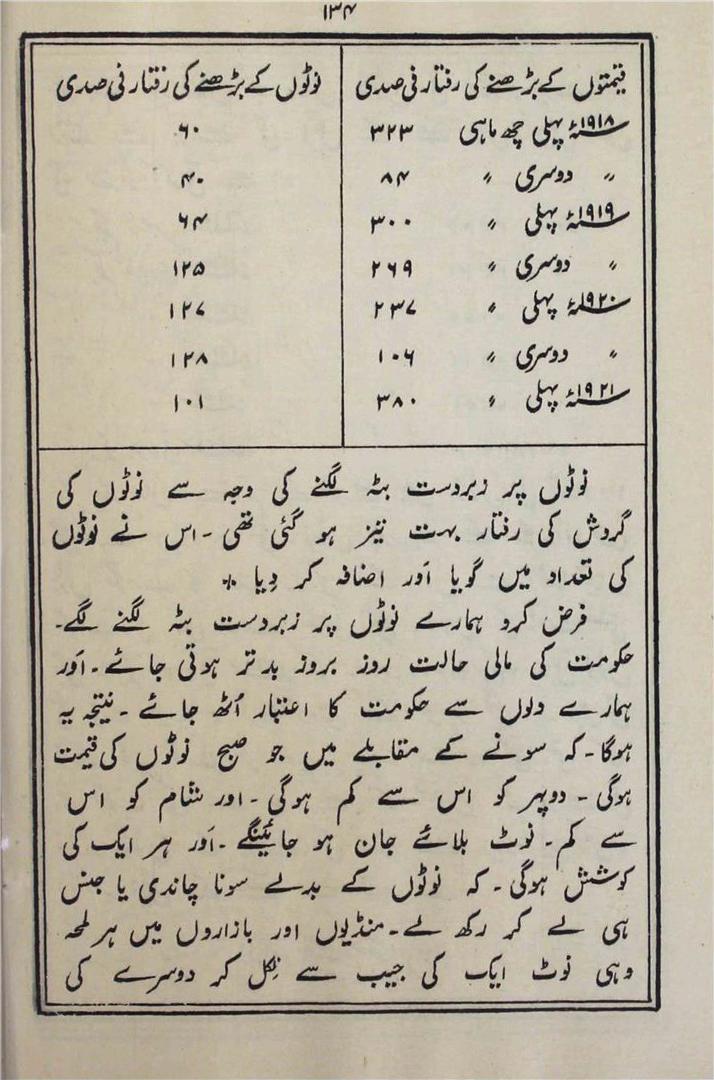 ۱۳۴
قیمتوں کے بڑھنے کی رفتار فی صدی نوٹوں کے بڑھنے کی رفتار فی صدی
۱۹۱۸ء پہلی چھ ماہی ۳۲۳ ۶۰
〃 دوسری 〃 ۸۴ ۴۰
۱۹۱۹ء پہلی 〃 ۳۰۰ ۶۴
〃 دوسری 〃 ۲۶۹ ۱۲۵
۱۹۲۰ء پہلی 〃 ۲۳۷ ۱۲۷
〃 دوسری 〃 ۱۰۶ ۱۲۸
۱۹۲۱ء پہلی 〃 ۳۸۰ ۱۰۱
نوٹوں پر زبردست بٹہ لگنے کی وجہ سے نوٹوں کی
گردش کی رفتار بہت تیز ہو گئی تھی ۔ اس نے نوٹوں
کی تعداد میں گویا اَور اضافہ کر دِیا *
فرض کرو ہمارے نوٹوں پر زبردست بٹہ لگنے لگے۔
حکومت کی مالی حالت روز بروز بدتر ہوتی جائے۔ اَور
ہمارے دلوں سے حکومت کا اعتبار اُٹھ جائے ۔ نتیجہ یہ
ہوگا۔ کہ سونے کے مقابلے میں جو صبح نوٹوں کی قیمت
ہوگی ۔ دوپہر کو اس سے کم ہوگی ۔ اور شام کو اس
سے کم۔ نوٹ بلائے جان ہو جائینگے ۔ اَور ہر ایک کی
کوشش ہوگی ۔ کہ نوٹوں کے بدلے سونا چاندی یا جنس
ہی لے کر رکھ لے۔ منڈیوں اور بازاروں میں ہر لمحہ
وہی نوٹ ایک کی جیب سے نِکل کر دوسرے کی